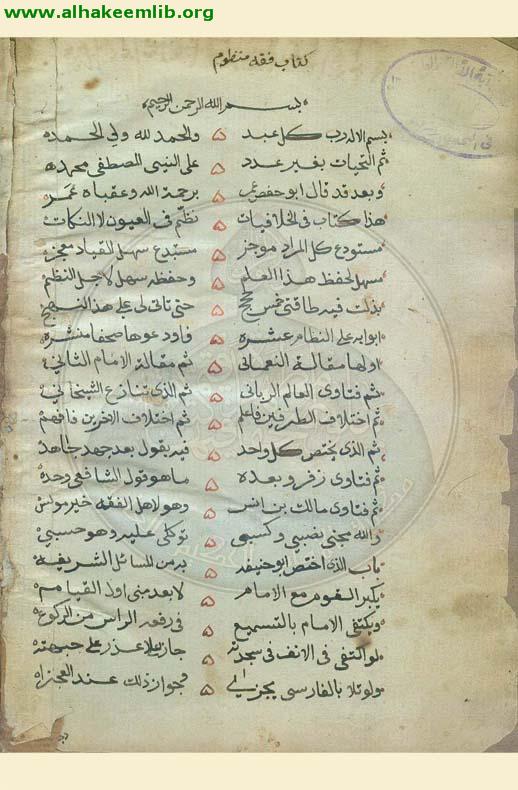 www.alhakeemlib.org
كتاب فقه منظوم
بسم الله الرحمن الرحيم
بسم الاله رب كل عبد والحمد لله ولي الحمد
ثم التحيات بغير عدد على النبي المصطفى محمد
وبعد قد قال ابو حفص عمر برحمة الله وعقباه عمر
هذا كتاب في الخلافيات نظم في العيون لا النكات
مستودع كل المراد موجز مستبدع سهل القياد معجز
مسهل لحفظ هذا العلم وحفظه سهل لاجل النظم
بذلت فيه طاقتي خمس حجج حتى تاتى لي على هذا النهج
ابوابه على النظام عشره فاودعوها صحفا منشره
اولها مقالة النعماني ثم مقالة الامام الثاني
ثم فتاوى العالم الرباني ثم الذي تنازع الشيخاني
ثم اختلاف الطرفين فاعلم ثم اختلاف الاخرين فافهم
ثم الذي يختص كل واحد فيه بقول بعد جهد جاهد
ثم فتاوى زفر وبعده ما هو قول الشافعي وحده
ثم فتاوى مالك بن انس وهو لاهل الفقه خير مونس
والله يجني نصبي وكسبي توكلي عليه وهو حسبي
باب الذي اختص ابو حنيفه به من المسائل الشريفه
يكبر القوم مع الامام لا بعد مبنى اول القيام
ويكتفي الامام بالتسميع في رفعه الراس من الركوع
لو اكتفى في الانف في سجدته جاز بلا عذر على جبهته
ولو تلا بالفارسي يجزي وجواز ذلك عند العجز